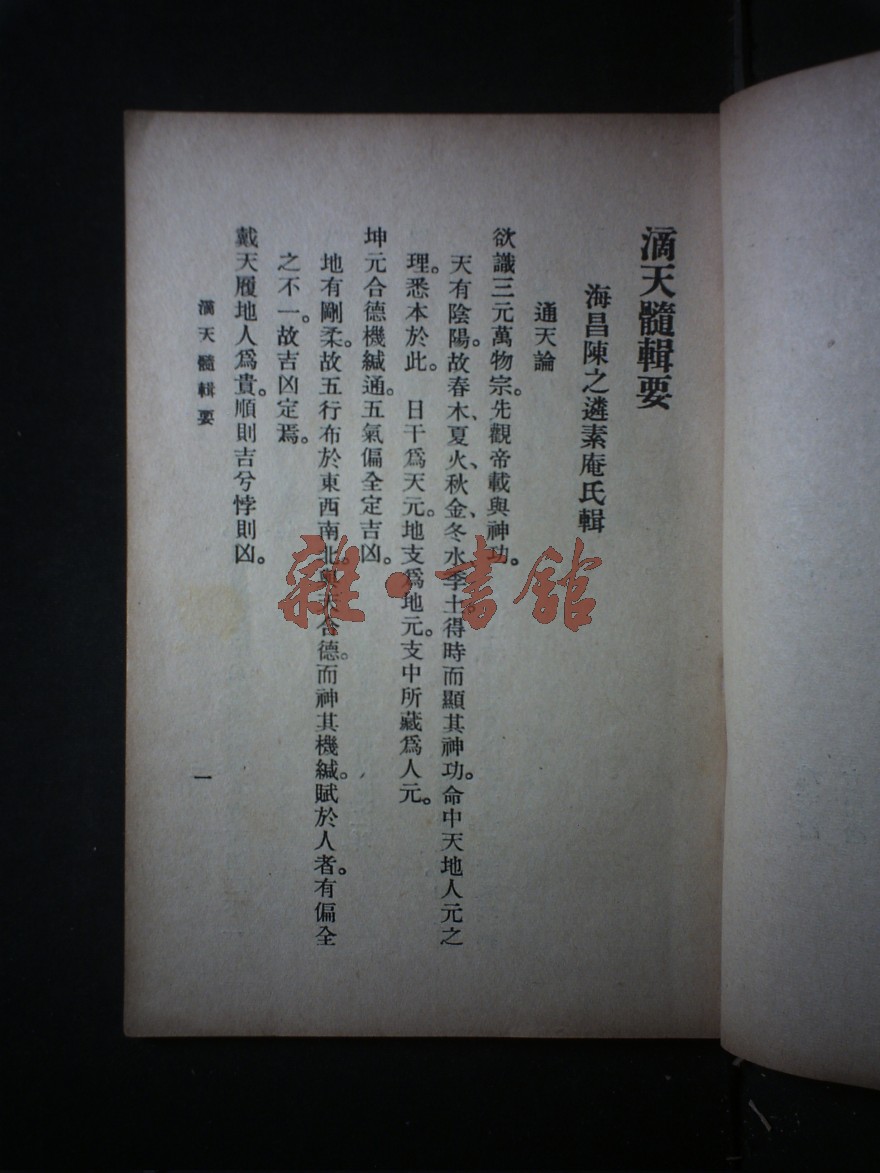 滴天髓輯要
海昌陳之遴素庵氏輯
通天論
欲識三元萬物宗。先觀帝載與神功。
天有陰陽。故春木、夏火、秋金、冬水季土。得時而顯其神功。命中天地人元之
理。悉本於此。　日干爲天元。地支爲地元。支中所藏爲人元。
坤元合德機緘通。五氣偏全定吉凶。
地有剛柔。故五行布於東西南北。與天合德。而神其機緘。賦於人者。有偏全
之不一。故吉凶定焉。
戴天履地人爲貴。順則吉兮悖則凶。
滴天髓輯要
一
雜·書館